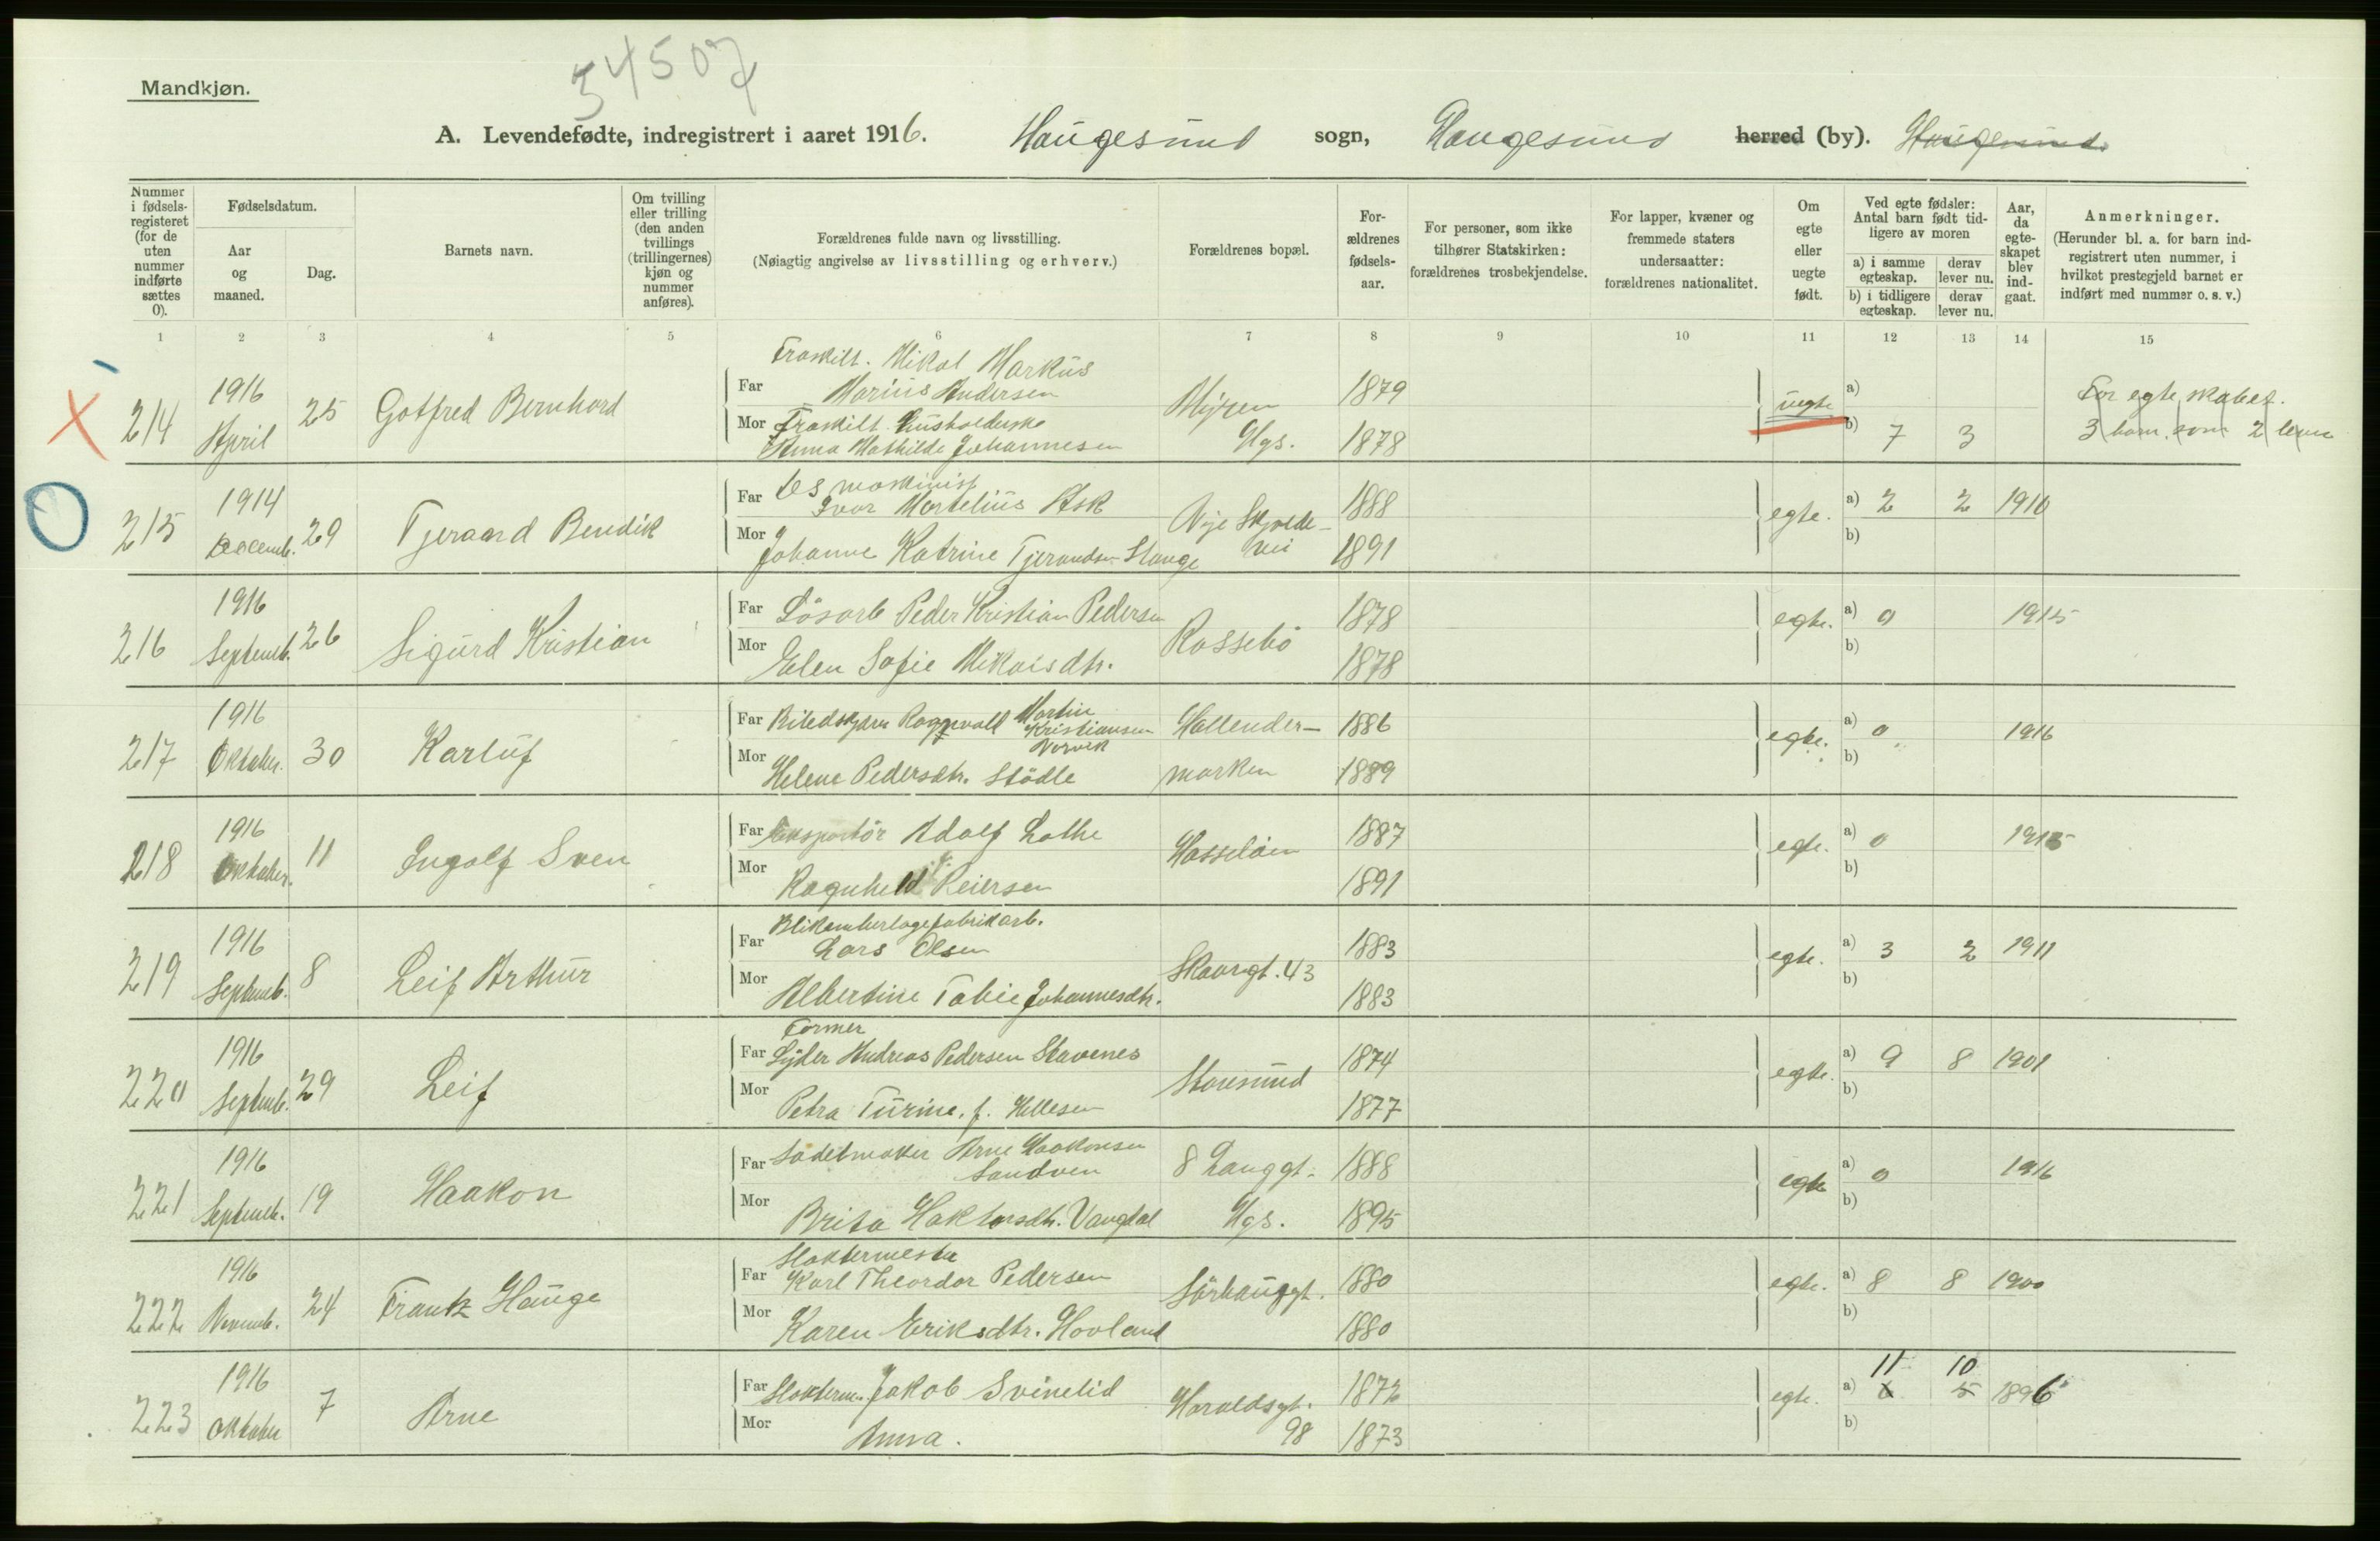 34507
Mandkjøn.
A. Levendefødte, indregistrert i aaret 1916. Haugesund sogn, Haugesund herred (by). Haugesund.
Nummer i fødsels-registeret (for de uten nummer indførte sættes 0).
Fødselsdatum.
Aar og maaned.
Dag.
Barnets navn.
Om tvilling eller trilling (den anden tvillings (trillingernes) kjøn og nummer anføres).
Forældrenes fulde navn og livsstilling.
(Nøiagtig angivelse av livsstilling og erhverv.)
Forældrenes bopæl.
For-ældrenes fødsels-aar.
For personer, som ikke tilhører Statskirken: forældrenes trosbekjendelse.
For lapper, kvæner og fremmede staters undersaatter: forældrenes nationalitet.
Om egte eller uegte født.
Ved egte fødsler: Antal barn født tid-ligere av moren
a) i samme egteskap.
derav lever nu.
b) i tidligere egteskap.
derav lever nu.
Aar, da egte-skapet blev ind-gaat.
Anmerkninger.
(Herunder bl. a. for barn ind-registrert uten nummer, i hvilket prestegjeld barnet er indført med nummer o. s. v.)
1 2 3 4 5 6 7 8 9 10 11 12 13 14 15
214 1916 April 25 Gotfred Bernhard
Fraskilt. Mikal Markus
Far Marius Andersen 1879
Mor Fraskilt Husholderske
Anna Mathilde Johannesen 1878
Myren
Hgs.
uegte a)
b) 7 3
For egteskabet.
3 barn, som 2 lever
215 1914 Decemb. 29 Tjerand Bendik
Far maskinist
Ivar Martelius Ask 1888
Mor Johanne Katrine Tjerandsen Stange 1891
Nye Skjolde-
vei
egte. a) 2 2 1910
b)
216 1916 Septemb. 26 Sigurd Kristian
Far Lösarb Peder Kristian Pedersen 1878
Mor Elen Sofie Mikaisdtr. 1878
Rossebö
egte. a) 0 1915
b)
217 1916 Oktober. 30 Karluf
Far Ragnvald Martin
Kristiansen
Norvik 1886
Mor Helene Pedersdtr. Stödle 1889
Hallender-
marken
egte. a) 0 1916
b)
218 1916 Oktober. 11 Ingolf Sven
Far Eksportör Adolf Lothe 1887
Mor Ragnhild Reiersen 1891
Hasseløen
egte. a) 0 1915
b)
219 1916 Septemb. 8 Leif Arthur
Blikemballagefabrikarb.
Far Lars Olsen 1883
Mor Albertine Tobie Johannesdtr. 1883
Skaargt. 43
egte. a) 3 2 1911
b)
220 1916 Septemb. 29 Leif
Former
Far Lyder Andreas Pedersen Stavenes 1874
Mor Petra Turine, f. Hellesen 1877
Storesund
egte. a) 9 8 1901
b)
221 1916 Septemb. 19 Haakon
Far Sadelmaker Arne Haakonsen
Sandven 1888
Mor Brita Haktorsdtr. Vangdal 1895
8 Langgt.
Hgs.
egte a) 0 1916
b)
222 1916 Novemb. 24 Frantz Hauge
Slaktermester
Far Karl Theordor Pedersen 1880
Mor Karen Eriksdtr. Hovland 1880
Sörhauggt.
egte. a) 8 8 1900
b)
223 1916 Oktober 7 Arne
Far Slakterm. Jakob Svinelid 1872
Mor Anna. 1873
Haraldsgt.
98
egte. 11 10
a) 5 1896
b)